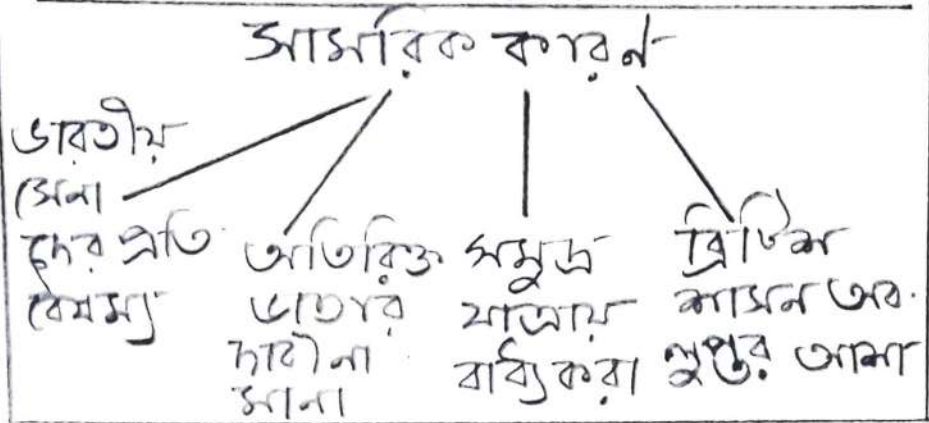 সামরিক কারণ
ভারতীয়
সেনা
দের প্রতি
বৈষম্য
অতিরিক্ত
ভাতার
দাবী না
মানা
সমুদ্র
যাত্রায়
বাধ্য করা
ব্রিটিশ
শাসন অব.
লুপ্তর আশা